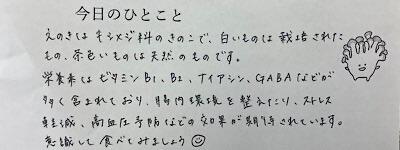 今日のひとこと
えのきはキシメジ科のきのこで、白いものは栽培された
もの、茶色いものは天然のものです。
栄養素はビタミンB1、B2、ナイアシン、GABAなどが
多く含まれており、腸内環境を整えたり、ストレス
軽減、高血圧予防などの効果が期待されています。
意識して食べてみましょう☺